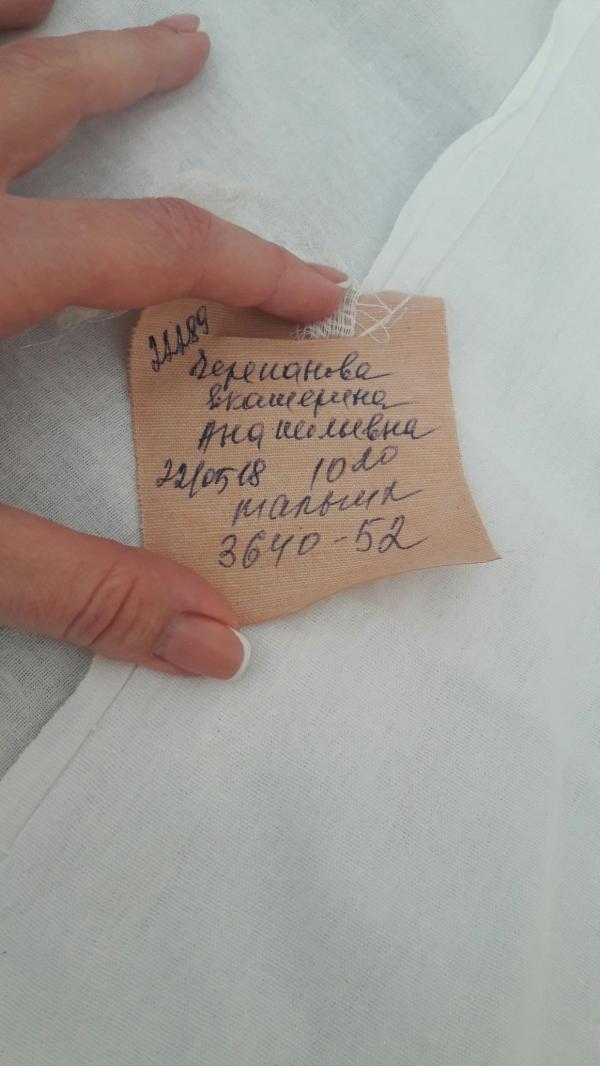 Черепанова
Екатерина
22/05/18 10 20
мальчик
3640-52